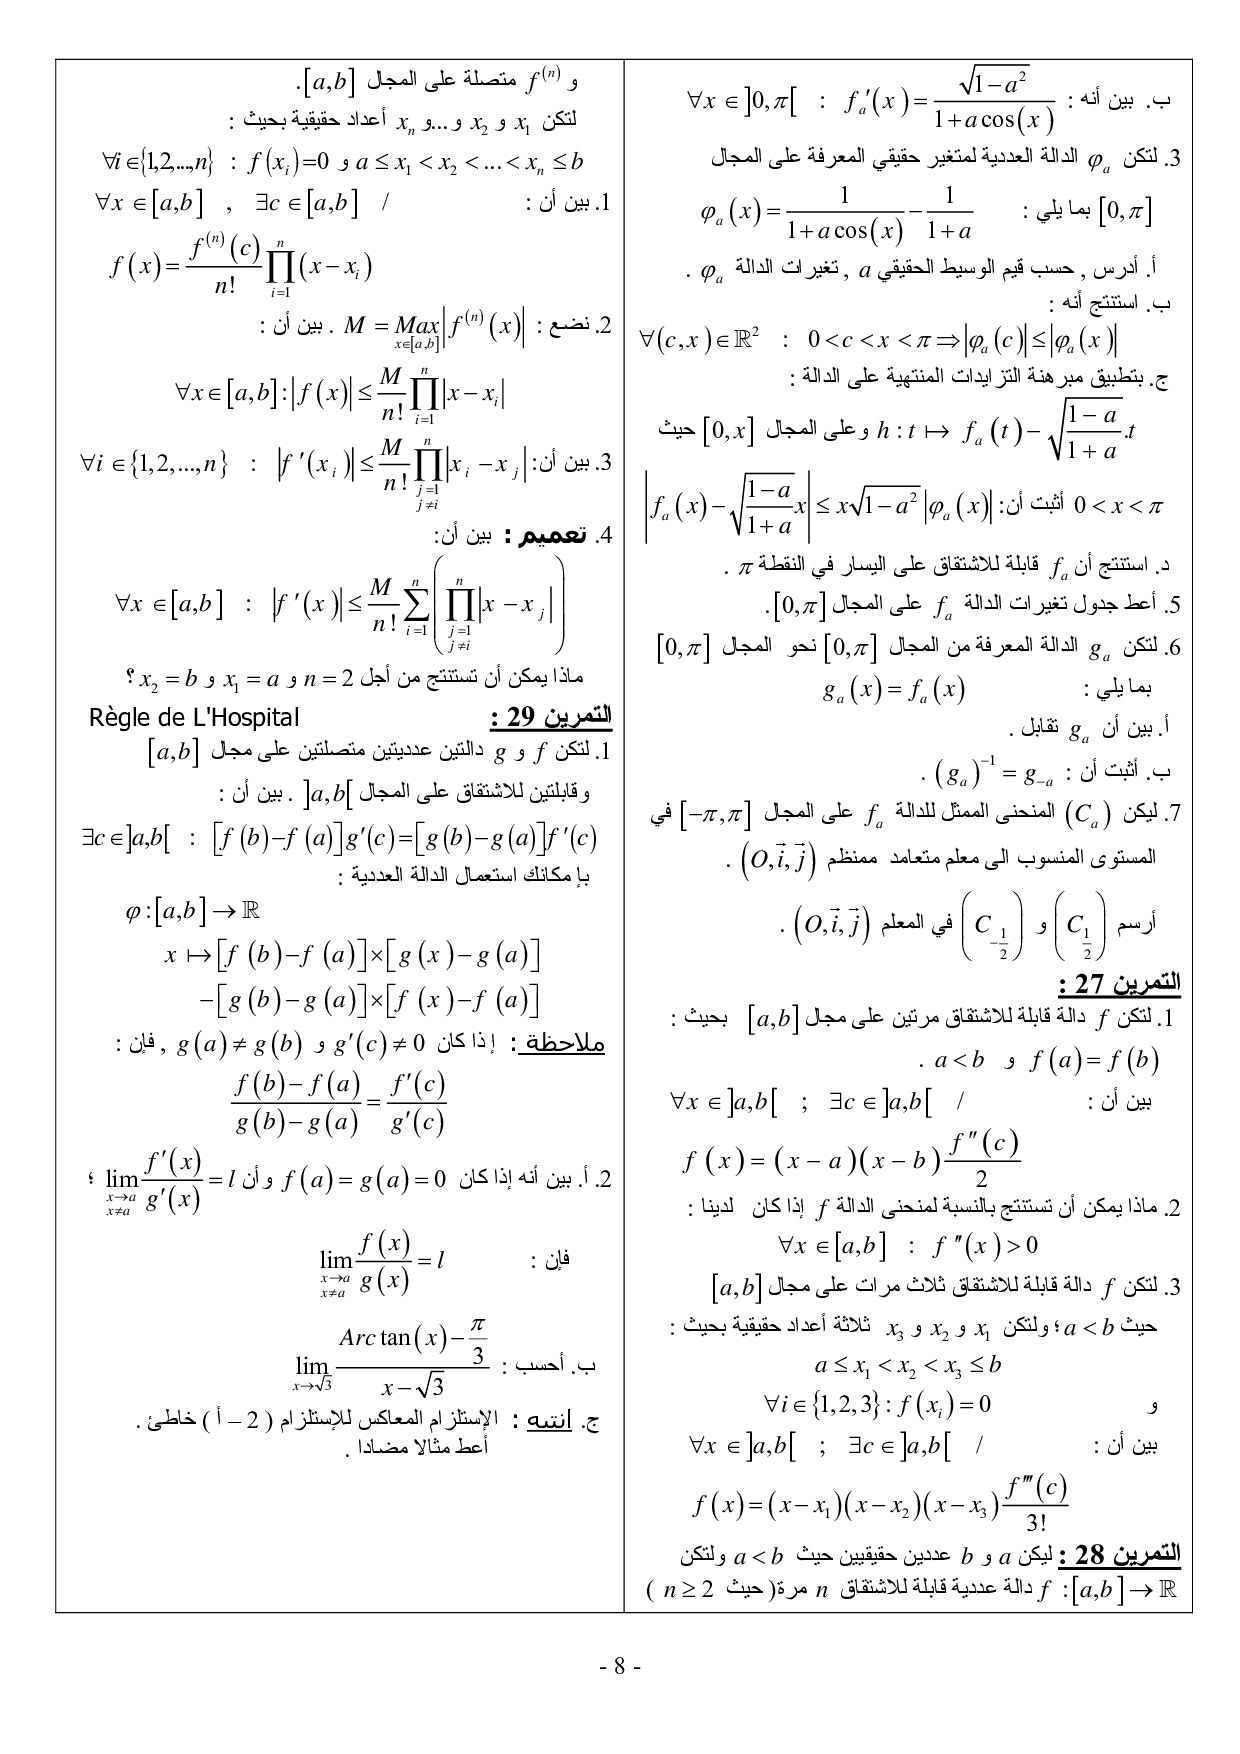 ب. بين أنه : ∀x ∈ ]0,π[ : fₐ′(x) = √(1−a²) / (1+a cos(x))
3. لتكن φₐ الدالة العددية لمتغير حقيقي المعرفة على المجال
[0,π] بما يلي : φₐ(x) = 1/(1+a cos(x)) − 1/(1+a)
أ. أدرس , حسب قيم الوسيط الحقيقي a , تغيرات الدالة φₐ .
ب. استنتج أنه :
∀(c,x) ∈ ℝ² : 0 < c < x < π ⇒ |φₐ(c)| ≤ |φₐ(x)|
ج. بتطبيق مبرهنة التزايدات المنتهية على الدالة :
h : t ↦ fₐ(t) − √((1−a)/(1+a)).t وعلى المجال [0,x] حيث
0 < x < π أثبت أن: |fₐ(x) − √((1−a)/(1+a)) x| ≤ x√(1−a²) |φₐ(x)|
د. استنتج أن fₐ قابلة للاشتقاق على اليسار في النقطة π .
5. أعط جدول تغيرات الدالة fₐ على المجال [0,π].
6. لتكن gₐ الدالة المعرفة من المجال [0,π] نحو المجال [0,π]
بما يلي : gₐ(x) = fₐ(x)
أ. بين أن gₐ تقابل .
ب. أثبت أن : (gₐ)⁻¹ = g₋ₐ .
7. ليكن (Cₐ) المنحنى الممثل للدالة fₐ على المجال [−π,π] في
المستوى المنسوب الى معلم متعامد ممنظم (O,i⃗,j⃗) .
أرسم (C_{1/2}) و (C_{−1/2}) في المعلم (O,i⃗,j⃗) .
التمرين 27 :
1. لتكن f دالة قابلة للاشتقاق مرتين على مجال [a,b] بحيث :
f(a) = f(b) و a < b .
بين أن : ∀x ∈ ]a,b[ ; ∃c ∈ ]a,b[ /
f(x) = (x−a)(x−b) f″(c)/2
2. ماذا يمكن أن تستنتج بالنسبة لمنحنى الدالة f إذا كان لدينا :
∀x ∈ [a,b] : f″(x) > 0
3. لتكن f دالة قابلة للاشتقاق ثلاث مرات على مجال [a,b]
حيث a < b ؛ ولتكن x₁ و x₂ و x₃ ثلاثة أعداد حقيقية بحيث :
a ≤ x₁ < x₂ < x₃ ≤ b
و ∀i ∈ {1,2,3} : f(xᵢ) = 0
بين أن : ∀x ∈ ]a,b[ ; ∃c ∈ ]a,b[ /
f(x) = (x−x₁)(x−x₂)(x−x₃) f‴(c)/3!
التمرين 28 : ليكن a و b عددين حقيقيين حيث a < b ولتكن
f : [a,b] → ℝ دالة عددية قابلة للاشتقاق n مرة( حيث n ≥ 2 )
و f⁽ⁿ⁾ متصلة على المجال [a,b].
لتكن x₁ و x₂ و...و xₙ أعداد حقيقية بحيث :
a ≤ x₁ < x₂ < ... < xₙ ≤ b و ∀i ∈ {1,2,...,n} : f(xᵢ) = 0
1. بين أن : ∀x ∈ [a,b] , ∃c ∈ [a,b] /
f(x) = f⁽ⁿ⁾(c)/n! ∏_{i=1}^{n} (x−xᵢ)
2. نضع : M = Max_{x∈[a,b]} |f⁽ⁿ⁾(x)| . بين أن :
∀x ∈ [a,b] : |f(x)| ≤ M/n! ∏_{i=1}^{n} |x−xᵢ|
3. بين أن: ∀i ∈ {1,2,...,n} : |f′(xᵢ)| ≤ M/n! ∏_{j=1, j≠i}^{n} |xᵢ−xⱼ|
4. تعميم : بين أن:
∀x ∈ [a,b] : |f′(x)| ≤ M/n! ∑_{i=1}^{n} (∏_{j=1, j≠i}^{n} |x−xⱼ|)
ماذا يمكن أن تستنتج من أجل n = 2 و x₁ = a و x₂ = b ؟
التمرين 29 : Règle de L'Hospital
1. لتكن f و g دالتين عدديتين متصلتين على مجال [a,b]
وقابلتين للاشتقاق على المجال ]a,b[ . بين أن :
∃c ∈ ]a,b[ : [f(b)−f(a)]g′(c) = [g(b)−g(a)]f′(c)
بإ مكانك استعمال الدالة العددية :
φ : [a,b] → ℝ
x ↦ [f(b)−f(a)]×[g(x)−g(a)]
−[g(b)−g(a)]×[f(x)−f(a)]
ملاحظة : إذا كان g′(c) ≠ 0 و g(a) ≠ g(b) , فإن :
(f(b)−f(a))/(g(b)−g(a)) = f′(c)/g′(c)
2. أ. بين أنه إذا كان f(a) = g(a) = 0 وأن lim_{x→a, x≠a} f′(x)/g′(x) = l ؛
فإن : lim_{x→a, x≠a} f(x)/g(x) = l
ب. أحسب : lim_{x→√3} (Arctan(x) − π/3)/(x−√3)
ج. انتبه : الإستلزام المعاكس للإستلزام ( 2 – أ ) خاطئ .
أعط مثالا مضادا .
- 8 -